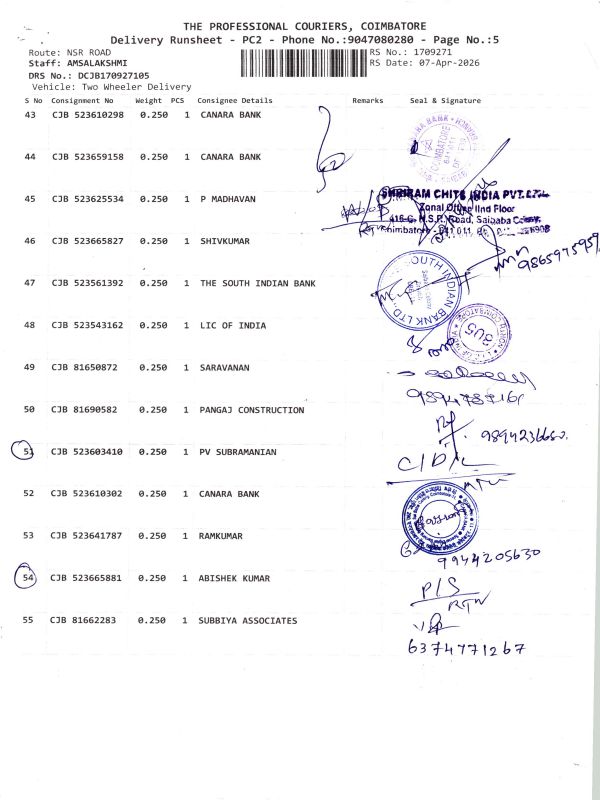 THE PROFESSIONAL COURIERS, COIMBATORE
Delivery Runsheet - PC2 - Phone No.:9047080280 - Page No.:5
Route: NSR ROAD RS No.: 1709271
Staff: AMSALAKSHMI RS Date: 07-Apr-2026
DRS No.: DCJB170927105
Vehicle: Two Wheeler Delivery
S No Consignment No Weight PCS Consignee Details Remarks Seal & Signature
43 CJB 523610298 0.250 1 CANARA BANK
44 CJB 523659158 0.250 1 CANARA BANK
45 CJB 523625534 0.250 1 P MADHAVAN
SHRIRAM CHITS INDIA PVT.LTD.
Zonal Office IInd Floor
416-C, N.S.R. Road, Saibaba Colony,
Coimbatore - 641 011.
46 CJB 523665827 0.250 1 SHIVKUMAR
9865975959
47 CJB 523561392 0.250 1 THE SOUTH INDIAN BANK
SOUTH INDIAN BANK LTD.
48 CJB 523543162 0.250 1 LIC OF INDIA
49 CJB 81650872 0.250 1 SARAVANAN
50 CJB 81690582 0.250 1 PANGAJ CONSTRUCTION
51 CJB 523603410 0.250 1 PV SUBRAMANIAN
C/D/L
RTN
52 CJB 523610302 0.250 1 CANARA BANK
53 CJB 523641787 0.250 1 RAMKUMAR
9944205630
54 CJB 523665881 0.250 1 ABISHEK KUMAR
P/S
RTN
55 CJB 81662283 0.250 1 SUBBIYA ASSOCIATES
6374771267